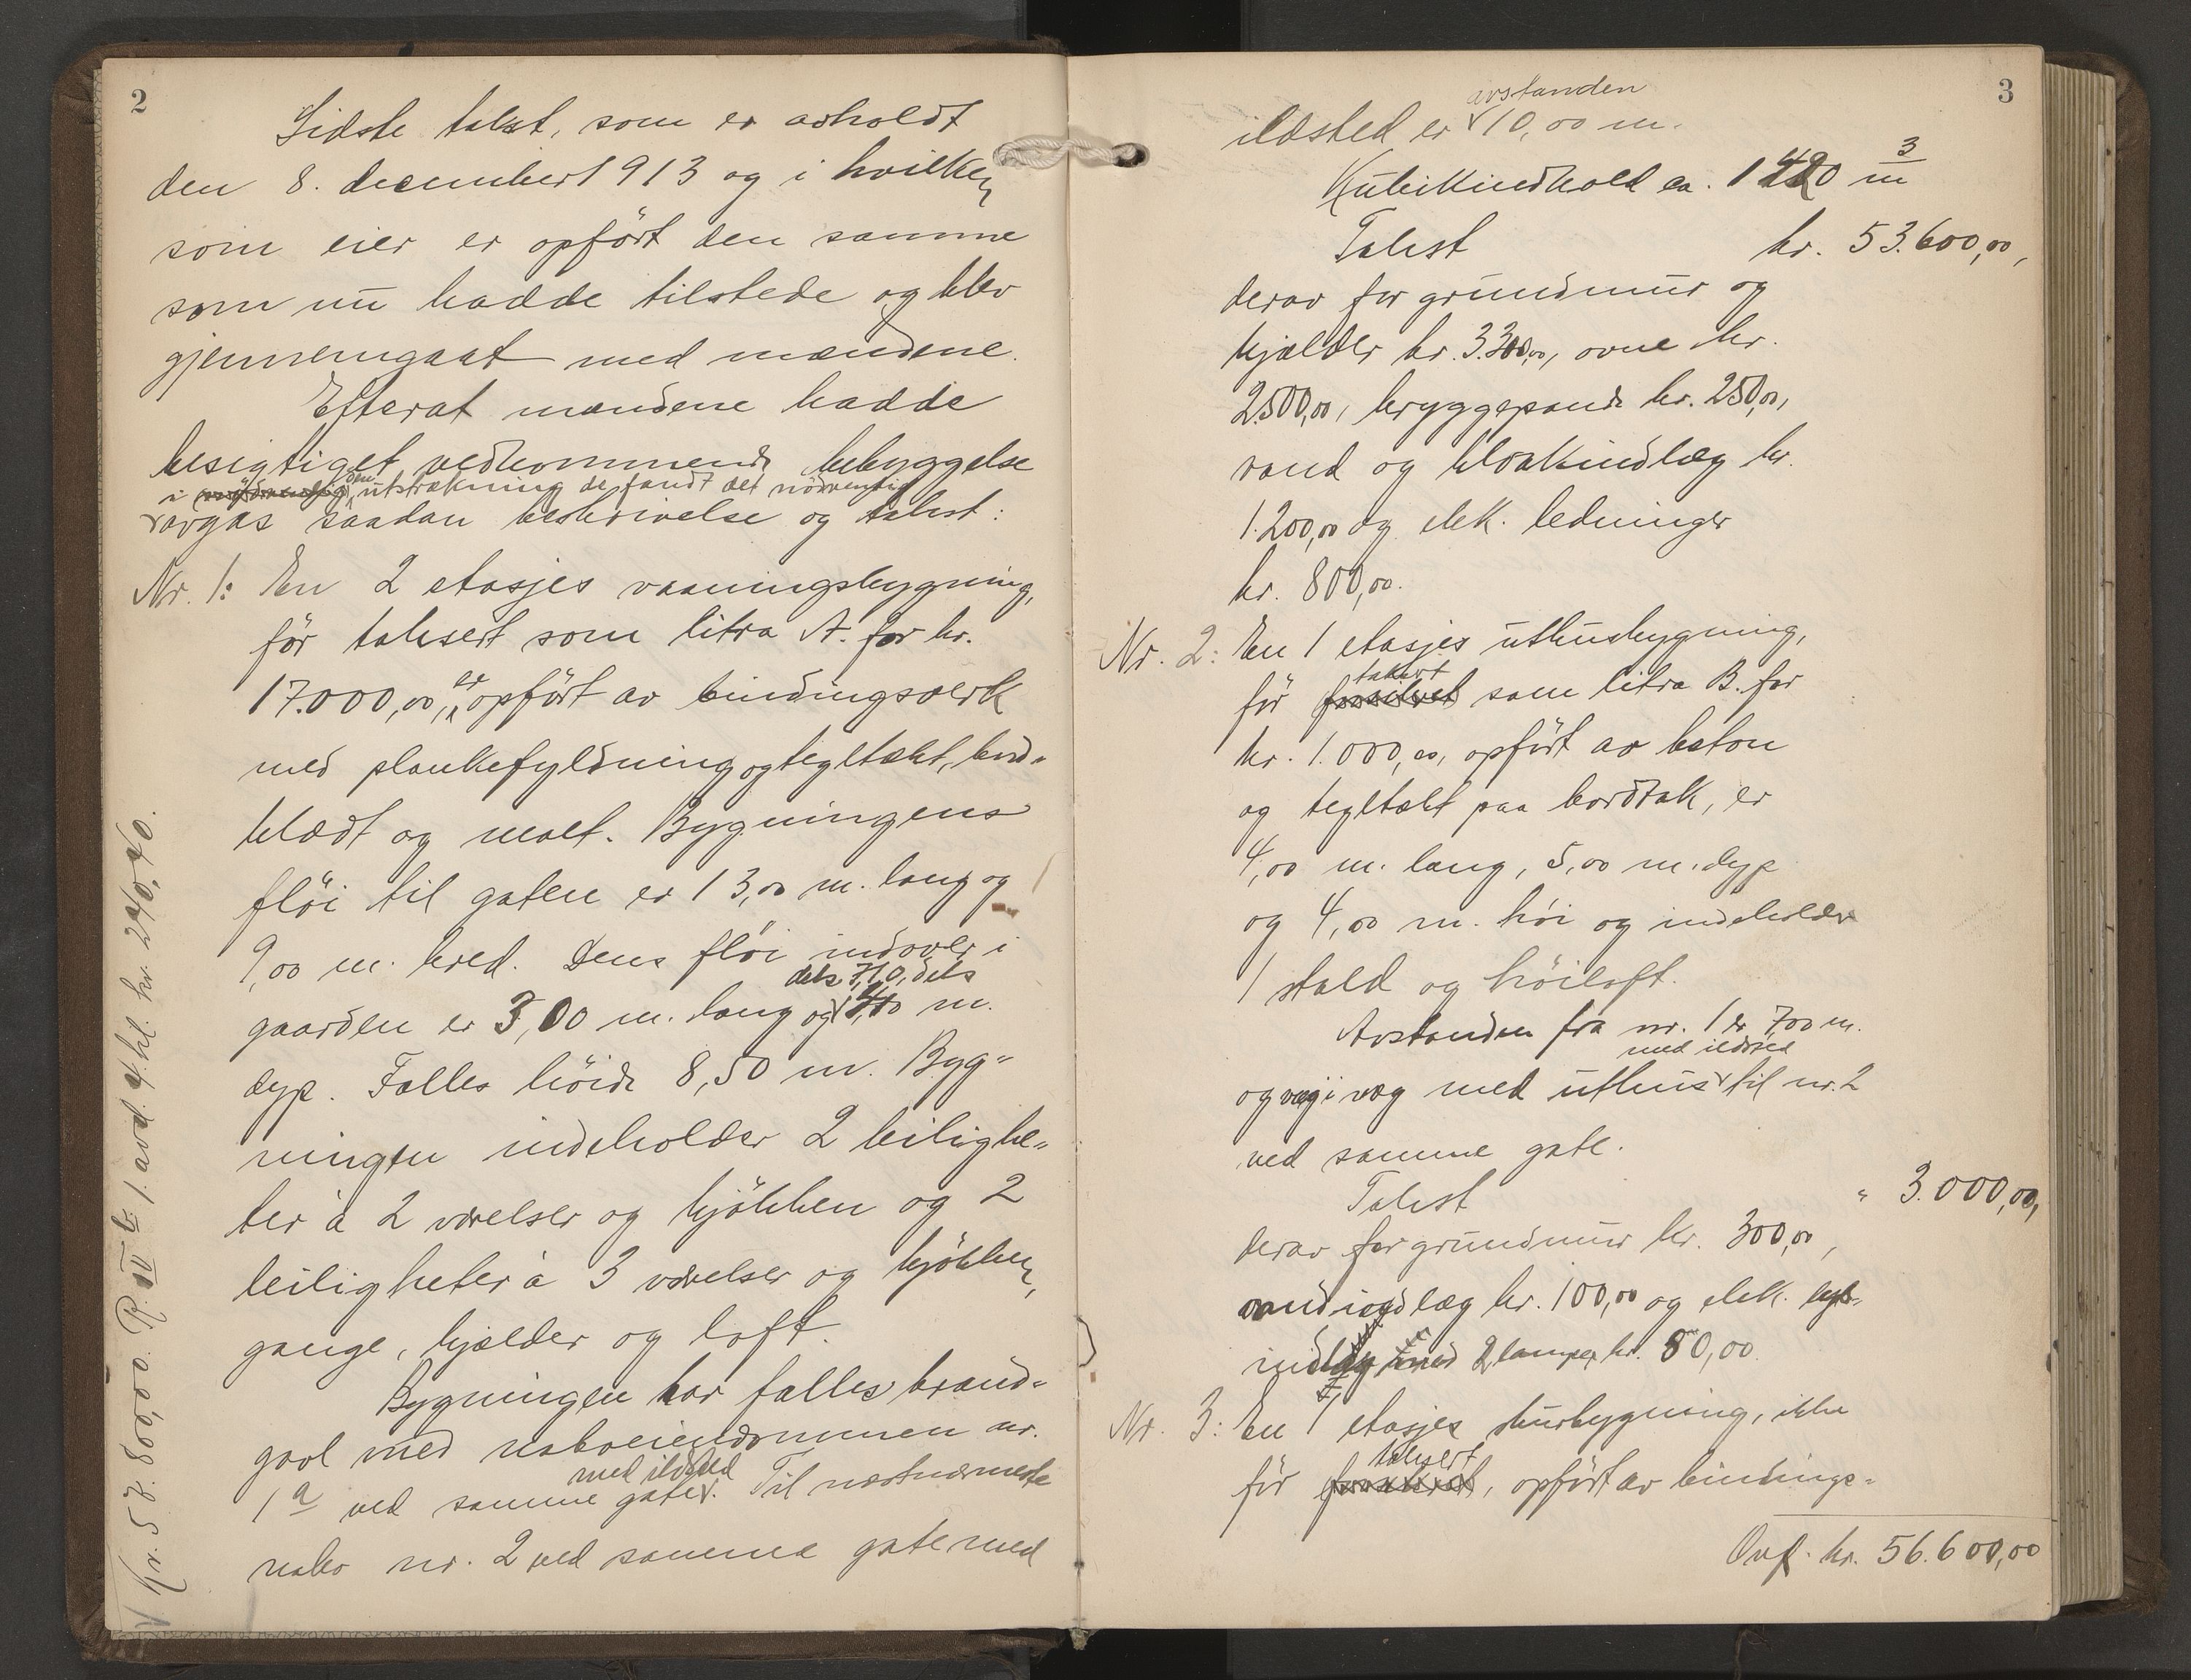 2
Sidste takst, som er avholdt
den 8. december 1913 og i hvilken
som eier er opført den samme
som nu hadde tilstede og blev
gjennemgaat med mændene.
Efterat mændene hadde
besigtiget vedkommende bebyggelse
i nødvendig den utstrækning de fandt det nødvendig
avgas saadan beskrivelse og takst:
Nr. 1: En 2 etasjes vaaningsbygning,
før taksert som litra A. for kr.
17.000,00, er opført av bindingsverk
med plankefyldning og tegltækt, bord-
klædt og malt. Bygningens
fløi til gaten er 13,00 m. lang og
9,00 m. bred. Dens fløi indover i
dels 7,10, dels
gaarden er 3,00 m. lang og 1,40 m.
dyp. Fælles høide 8,50 m. Byg-
ningen indeholder 2 leilighe-
ter à 2 værelser og kjøkken og 2
leiligheter à 3 værelser og kjøkken,
gange, kjælder og loft.
Bygningen har fælles brand-
gavl med naboeiendommen nr.
med ildsted
1a ved samme gate. Til næstnærmeste
nabo nr. 2 ved samme gate med
Kr. 57.800,00 R. IV b 1. avd. 4. kl. kr. 240,40.
3
avstanden
ildsted er 10,00 m.
Kubikindhold ca. 1420 m3
Takst kr. 53.600,00,
derav for grundmur og
kjælder kr. 3.300,00, ovne kr.
2.500,00, bryggepande kr. 250,00,
vand og kloakindlæg kr.
1.200,00 og elek. ledninger
kr. 800,00.
Nr. 2: En 1 etasjes uthusbygning,
taksert
før forsikret som litra B. for
kr. 1.000,00, opført av beton
og tegltækt paa bordtak, er
4,00 m. lang, 5,00 m. dyp
og 4,00 m. høi og indeholder
1 stald og høiloft.
Avstanden fra nr. 1 er 7,00 m.
med ildsted
og væg i væg med uthus til nr. 2
ved samme gate.
Takst " 3.000,00,
derav for grundmur kr. 300,00,
vandindlæg kr. 100,00 og elek. lys-
indlæg med 2 lamper kr. 50,00.
Nr. 3: En 1 etasjes skurbygning, ikke
taksert
før forsikret, opført av bindings-
Ovf. kr. 56.600,00